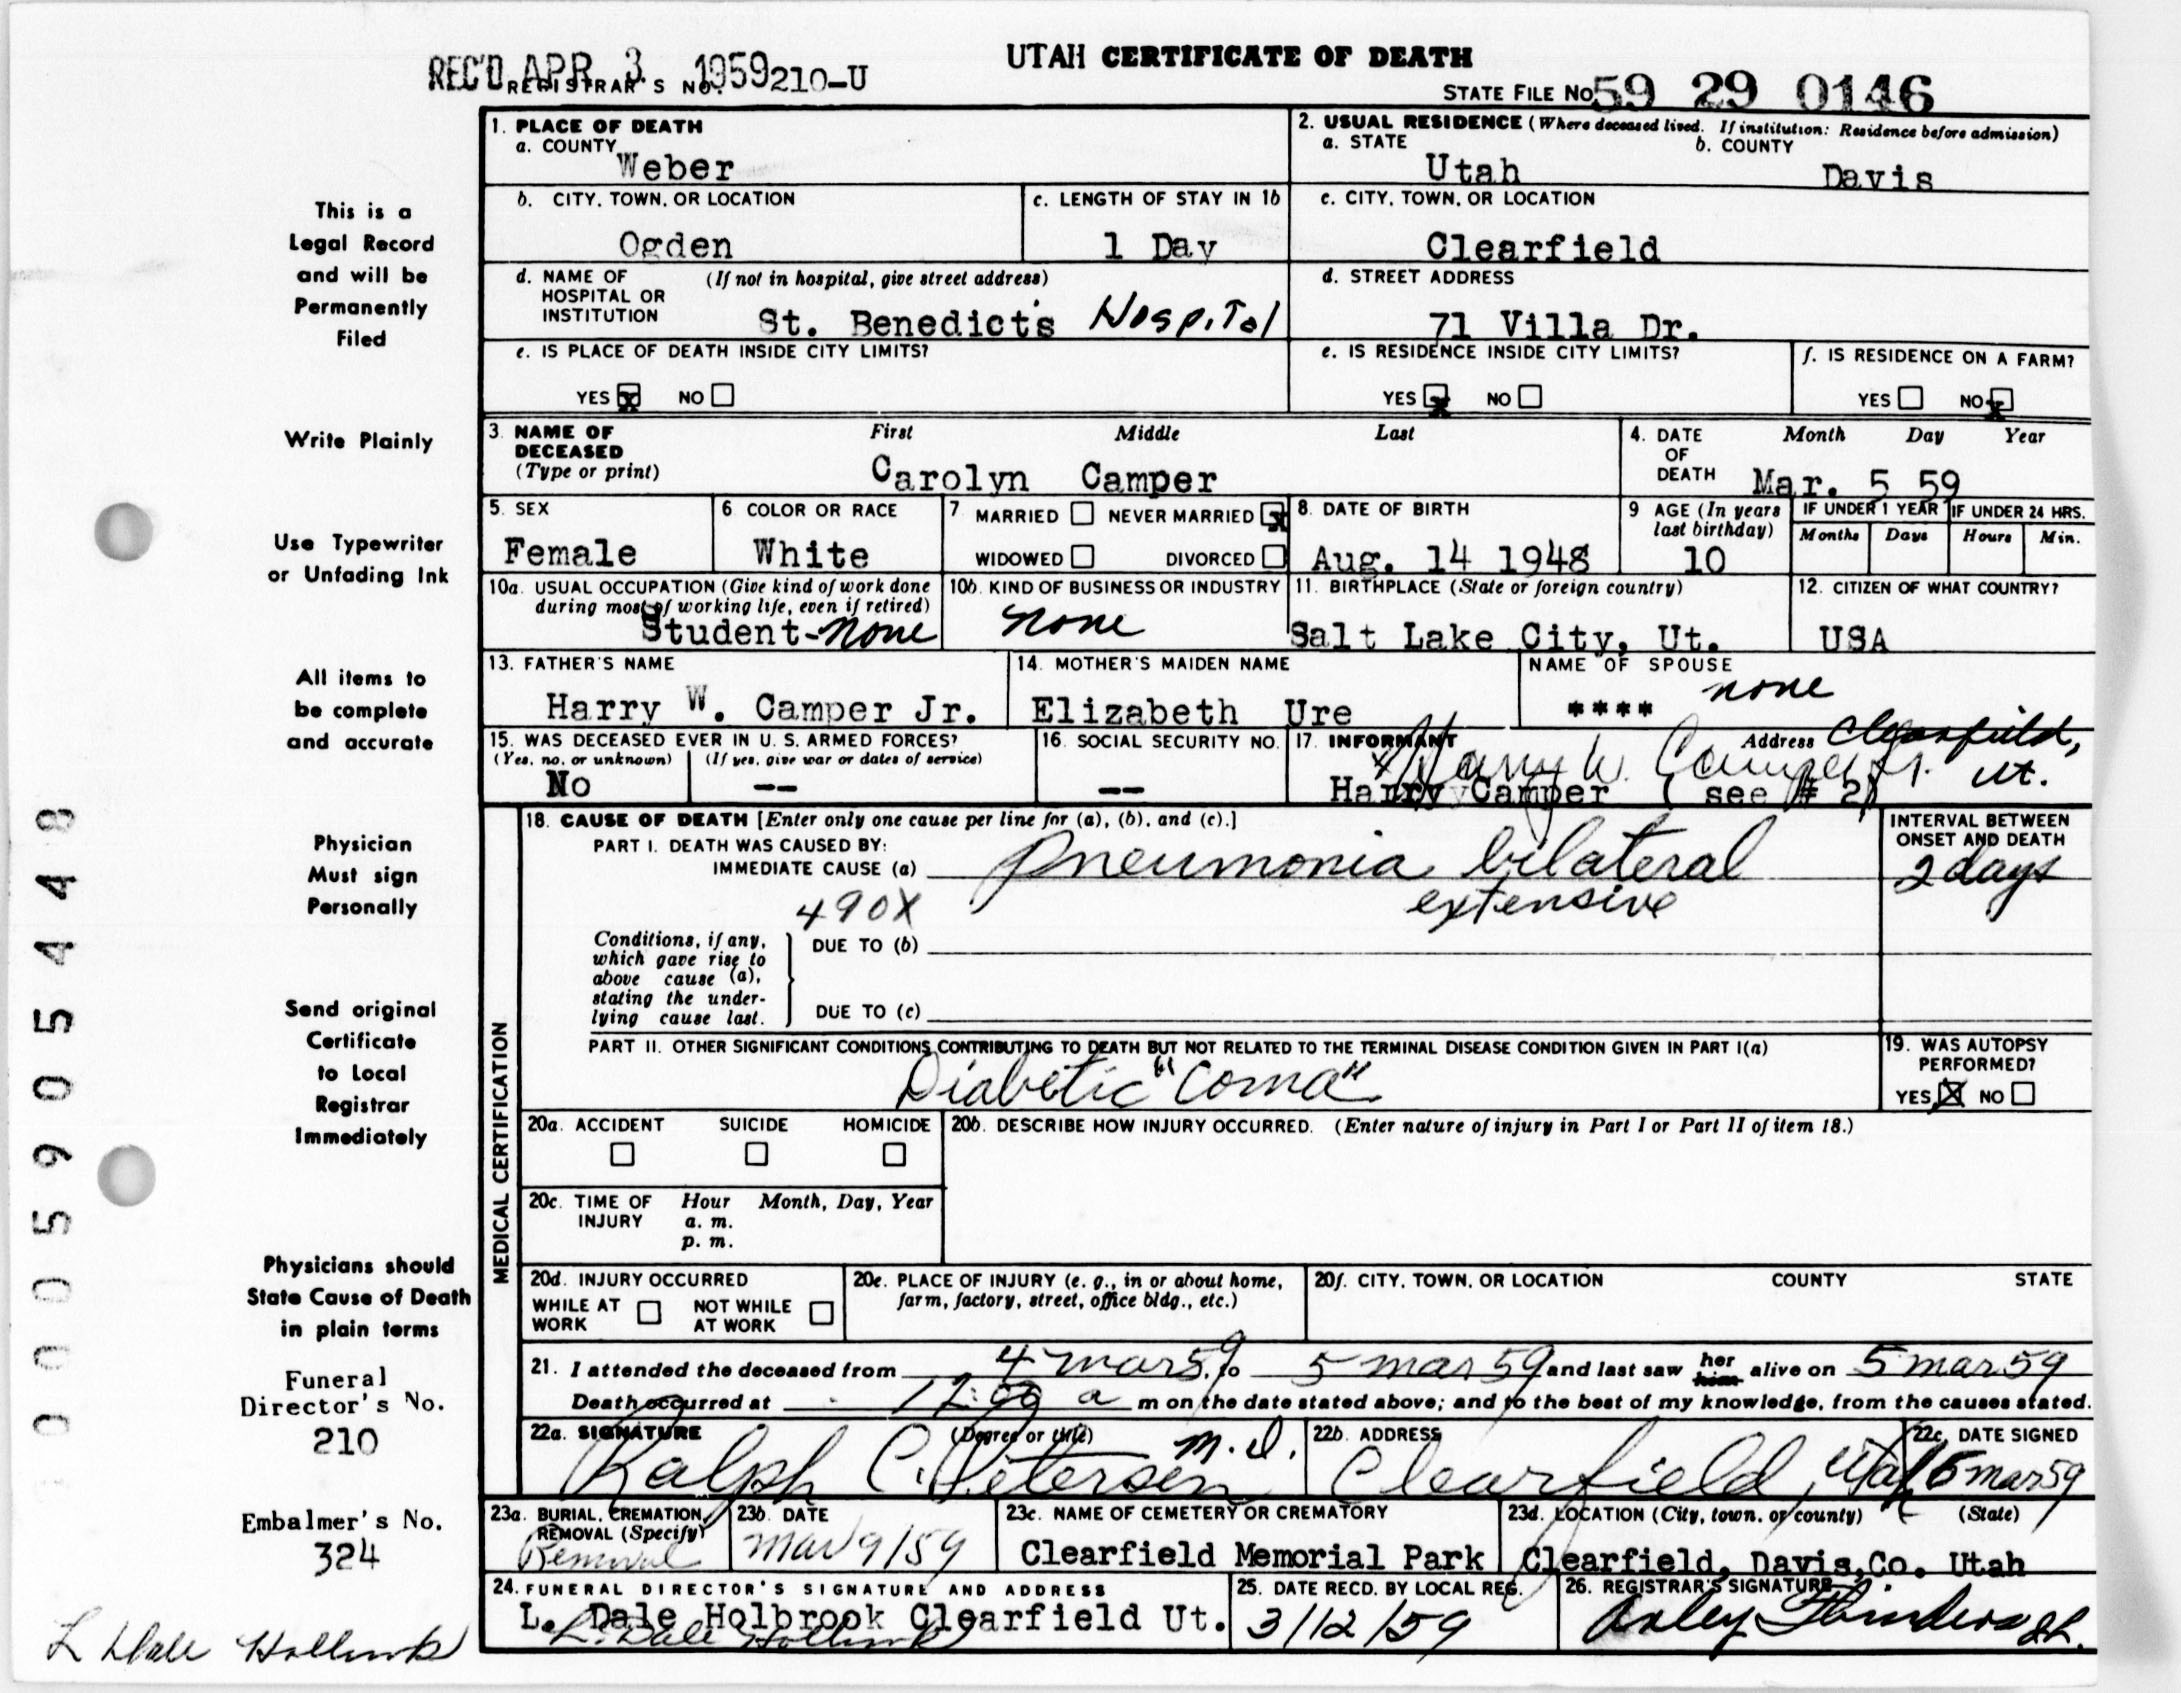 UTAH CERTIFICATE OF DEATH
REC'D APR 3 1959
REGISTRAR'S NO. 210-U
STATE FILE NO. 59 29 0146
1. PLACE OF DEATH
a. COUNTY
Weber
2. USUAL RESIDENCE (Where deceased lived. If institution: Residence before admission)
a. STATE b. COUNTY
Utah Davis
b. CITY, TOWN, OR LOCATION
Ogden
c. LENGTH OF STAY IN 1b
1 Day
c. CITY, TOWN, OR LOCATION
Clearfield
d. NAME OF (If not in hospital, give street address)
HOSPITAL OR
INSTITUTION
St. Benedict's Hospital
d. STREET ADDRESS
71 Villa Dr.
e. IS PLACE OF DEATH INSIDE CITY LIMITS?
YES x NO
e. IS RESIDENCE INSIDE CITY LIMITS?
YES x NO
f. IS RESIDENCE ON A FARM?
YES NO x
3. NAME OF DECEASED (Type or print)
First Middle Last
Carolyn Camper
4. DATE OF DEATH
Month Day Year
Mar. 5 59
5. SEX
Female
6. COLOR OR RACE
White
7. MARRIED NEVER MARRIED x
WIDOWED DIVORCED
8. DATE OF BIRTH
Aug. 14 1948
9. AGE (In years last birthday)
10
IF UNDER 1 YEAR IF UNDER 24 HRS.
Months Days Hours Min.
10a. USUAL OCCUPATION (Give kind of work done
during most of working life, even if retired)
Student-none
10b. KIND OF BUSINESS OR INDUSTRY
none
11. BIRTHPLACE (State or foreign country)
Salt Lake City, Ut.
12. CITIZEN OF WHAT COUNTRY?
USA
13. FATHER'S NAME
Harry W. Camper Jr.
14. MOTHER'S MAIDEN NAME
Elizabeth Ure
NAME OF SPOUSE
**** none
15. WAS DECEASED EVER IN U. S. ARMED FORCES?
(Yes, no, or unknown) (If yes, give war or dates of service)
No --
16. SOCIAL SECURITY NO.
--
17. INFORMANT Address Clearfield,
x Harry W. Camper Jr. Ut.
Harry Camper ( see # 2)
MEDICAL CERTIFICATION
18. CAUSE OF DEATH [Enter only one cause per line for (a), (b), and (c).]
PART I. DEATH WAS CAUSED BY:
IMMEDIATE CAUSE (a) Pneumonia bilateral
extensive
490X
INTERVAL BETWEEN
ONSET AND DEATH
2 days
Conditions, if any,
which gave rise to
above cause (a),
stating the under-
lying cause last.
DUE TO (b)
DUE TO (c)
PART II. OTHER SIGNIFICANT CONDITIONS CONTRIBUTING TO DEATH BUT NOT RELATED TO THE TERMINAL DISEASE CONDITION GIVEN IN PART I(a)
Diabetic "Coma"
19. WAS AUTOPSY
PERFORMED?
YES X NO
20a. ACCIDENT SUICIDE HOMICIDE
20b. DESCRIBE HOW INJURY OCCURRED. (Enter nature of injury in Part I or Part II of item 18.)
20c. TIME OF INJURY Hour Month, Day, Year
a. m.
p. m.
20d. INJURY OCCURRED
WHILE AT WORK NOT WHILE AT WORK
20e. PLACE OF INJURY (e. g., in or about home,
farm, factory, street, office bldg., etc.)
20f. CITY, TOWN, OR LOCATION COUNTY STATE
21. I attended the deceased from 4 Mar 59, to 5 Mar 59 and last saw her him alive on 5 Mar 59
Death occurred at 12:00 a m on the date stated above; and to the best of my knowledge, from the causes stated.
22a. SIGNATURE (Degree or title)
Ralph C. Petersen M.D.
22b. ADDRESS
Clearfield, Utah
22c. DATE SIGNED
5 Mar 59
23a. BURIAL, CREMATION,
REMOVAL (Specify)
Removal
23b. DATE
Mar 9/59
23c. NAME OF CEMETERY OR CREMATORY
Clearfield Memorial Park
23d. LOCATION (City, town, or county) (State)
Clearfield, Davis,Co. Utah
24. FUNERAL DIRECTOR'S SIGNATURE AND ADDRESS
L. Dale Holbrook Clearfield Ut.
L. Dale Holbrook
25. DATE RECD. BY LOCAL REG.
3/12/59
26. REGISTRAR'S SIGNATURE
This is a
Legal Record
and will be
Permanently
Filed
Write Plainly
Use Typewriter
or Unfading Ink
All items to
be complete
and accurate
Physician
Must sign
Personally
Send original
Certificate
to Local
Registrar
Immediately
Physicians should
State Cause of Death
in plain terms
Funeral
Director's No.
210
Embalmer's No.
324
L Dale Holbrook
0005905448